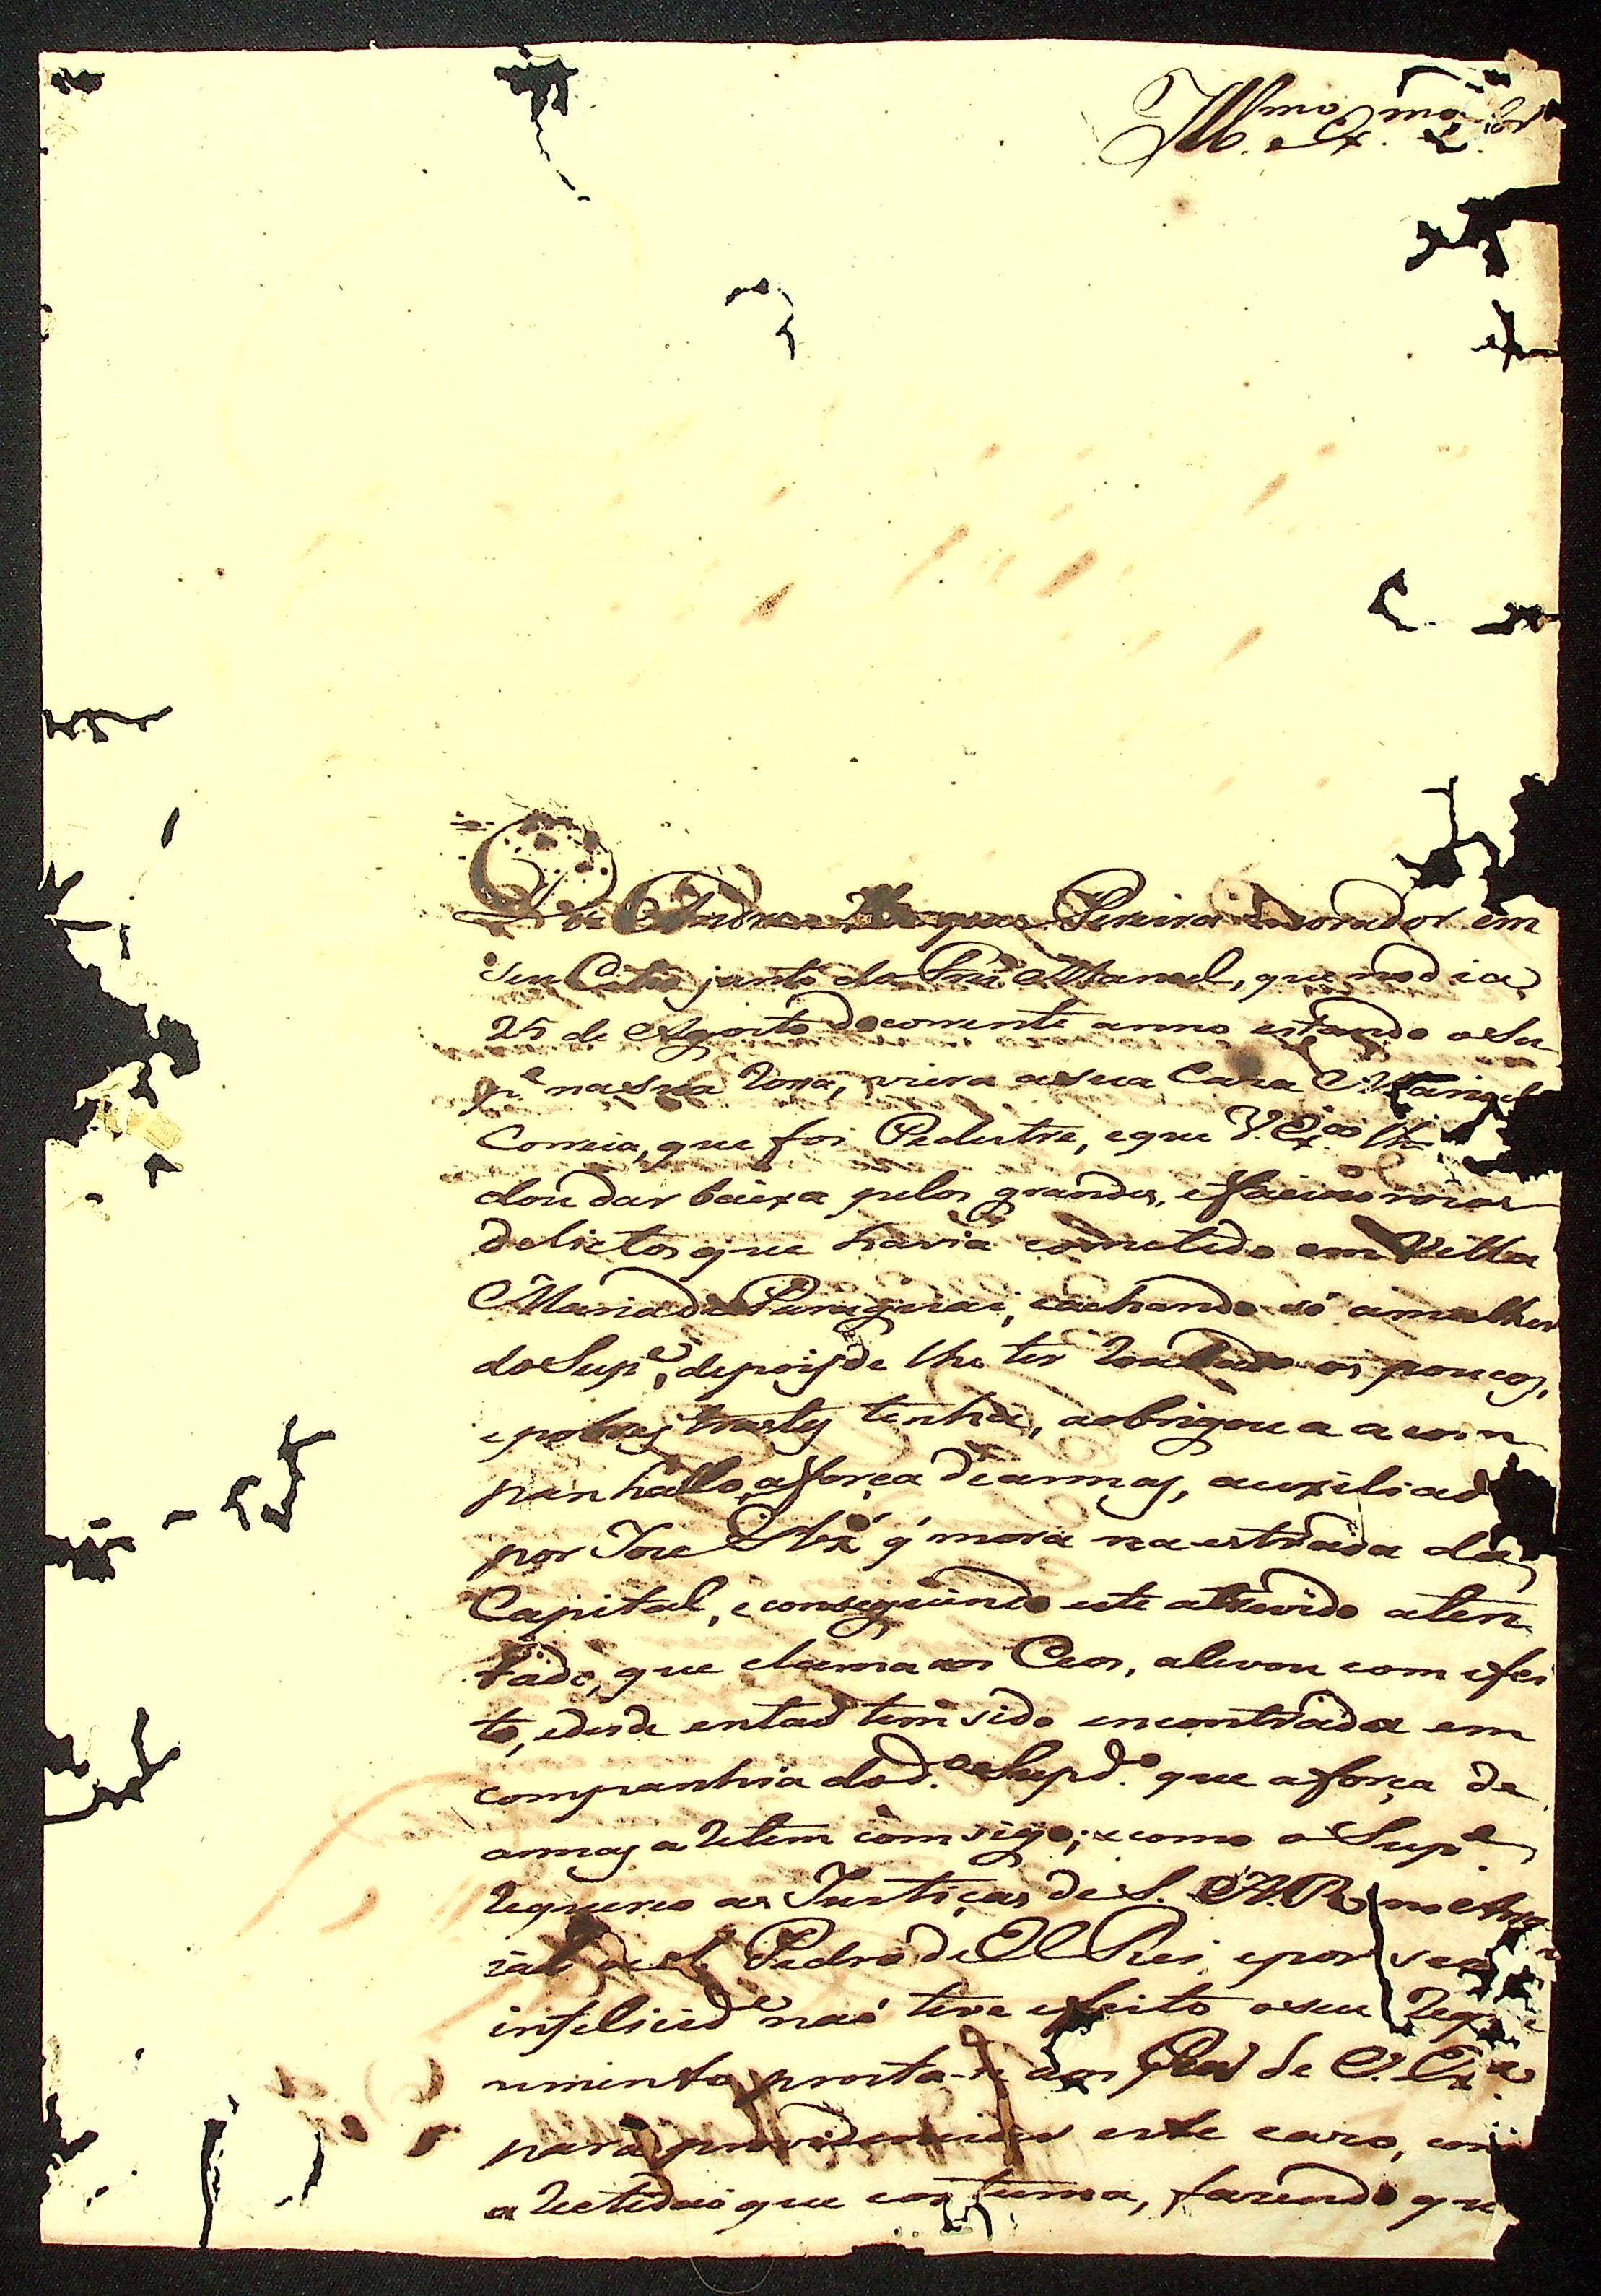 Ill.mo Ex.mo Snr
Pereira morador em
seu Citio junto do Manoel, que no dia
25 de Agosto do corrente anno estando o Su
p.e na sua Rossa, viera a sua Caza Manoel
Correia, que foi Pedestre, e que V. Ex.a lhe
dou dar baixa pelos grandes, e facinorozos
delictos que havia cometido em Villa
Maria do Paraguai, e achando só a mulher
do Sup.e, depois de lhe ter Roubado os poucos,
e pobres trastes tenha, a obrigou a acom
panhallo a força de armas, auxiliad
por Joze q' mora na estrada da
Capital, e conseguindo este atrevido aten
tado, que clama aos Ceos, a levou com efei
to, e desde entaõ tem sido encontrada em
companhia do d.o Supd.o que a força de
armas a Retem comsigo; e como o Sup.e
Requereo as Justiças de S. A. R. no Arra
ial de S. Pedro de El Rei e por sua
infelicid.e naõ teve efeito o seu Requ e
rimento prosta-se aos Pes de V. Ex.a
para providenciar este cazo, com
a Rectidaõ que costuma, fazendo que